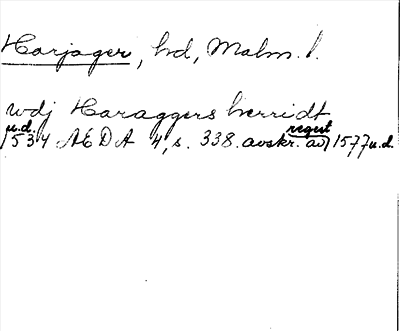 Harjager, hd, Malm. l.
wdj Haraggers herridt
u.d. regest
1534 AEDA 4, s. 338. avskr. av 1577 u.d.